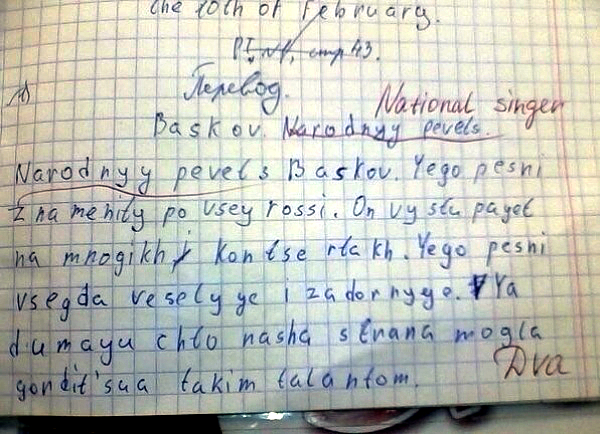 the 10th of February.
стр 43.
Перевод.
National singer
Baskov. Narodnyy pevets.
Narodnyy pevets Baskov. Yego pesni
znamenity po vsey rossi. On vystupayet
na mnogikh kontsertakh. Yego pesni
vsegda veselyye i zadornyye. Ya
dumayu chto nasha strana mogla
gordit'sua takim talantom.
Dva